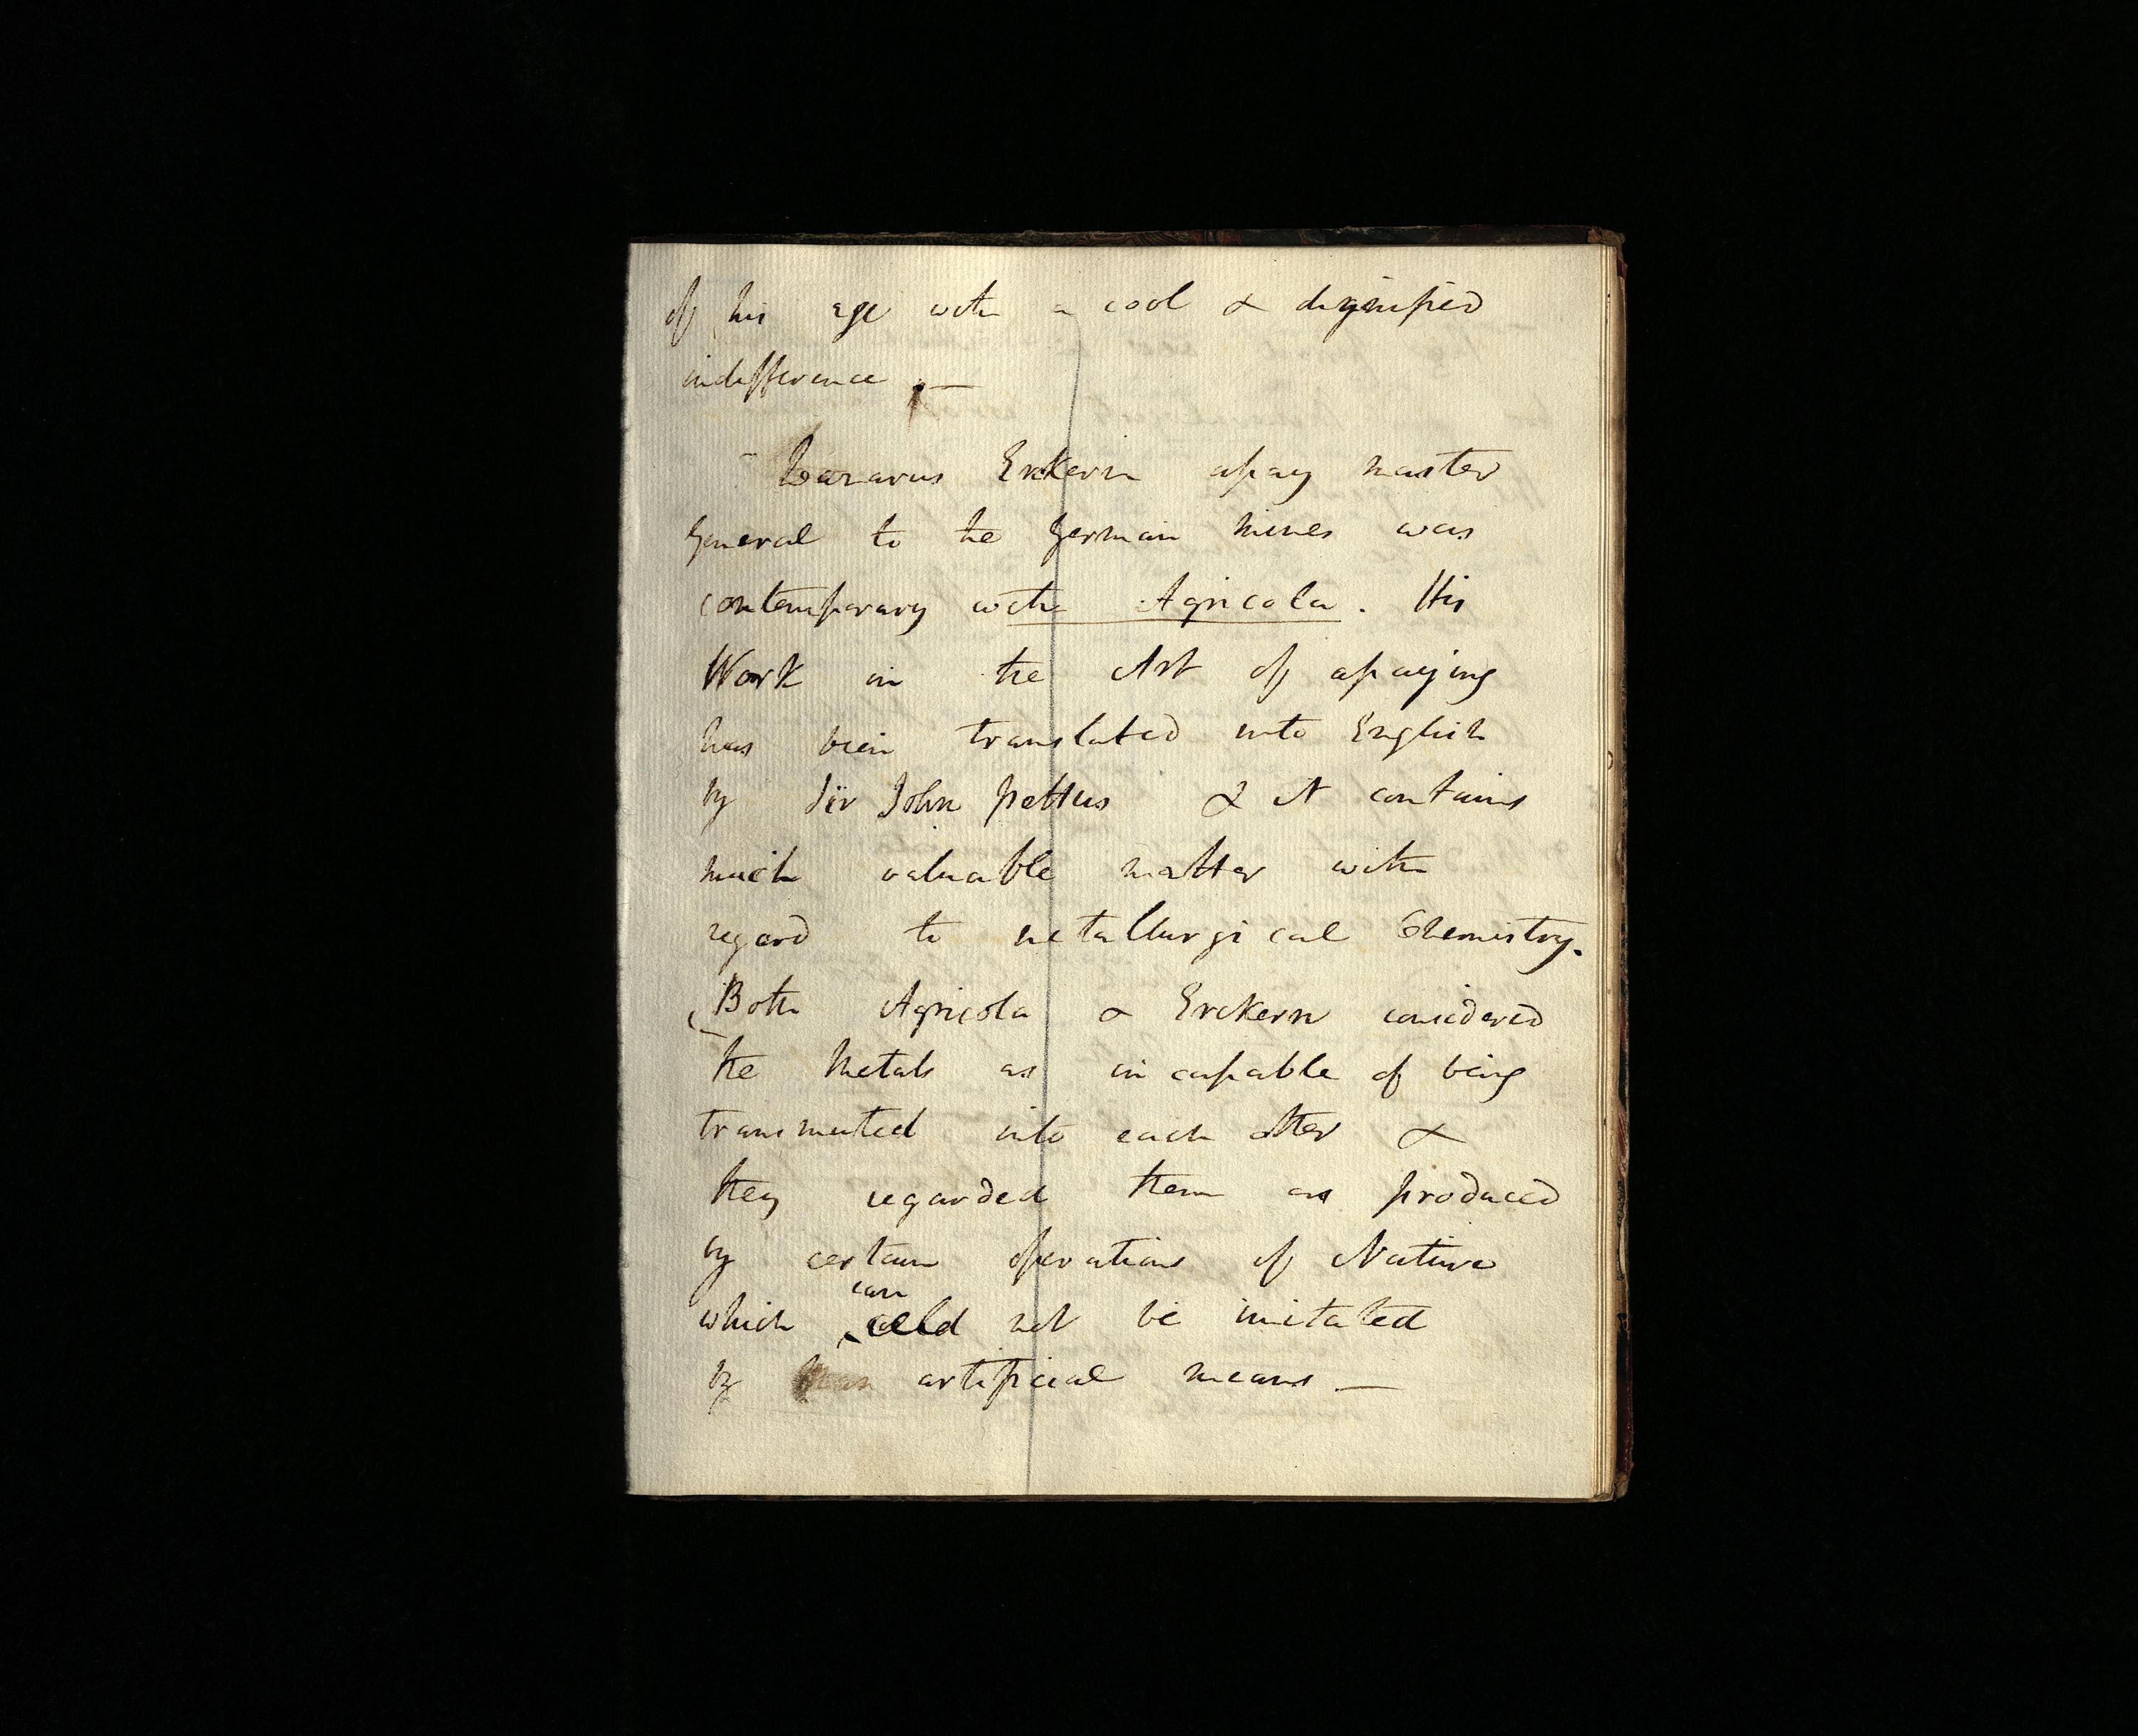 of his age with a cool & dignified
indifference.—
Lazarus Erkern assay master
General to the German mines was
contemporary with Agricola. His
Work in the Art of assaying
has been translated into English
by Sir John Pettus & it contains
much valuable matter with
regard to metallurgical Chemistry.
Both Agricola & Erckern considered
the Metals as incapable of being
transmuted into each other &
they regarded them as produced
by certain operations of Nature
can
which could not be imitated
by artificial means —